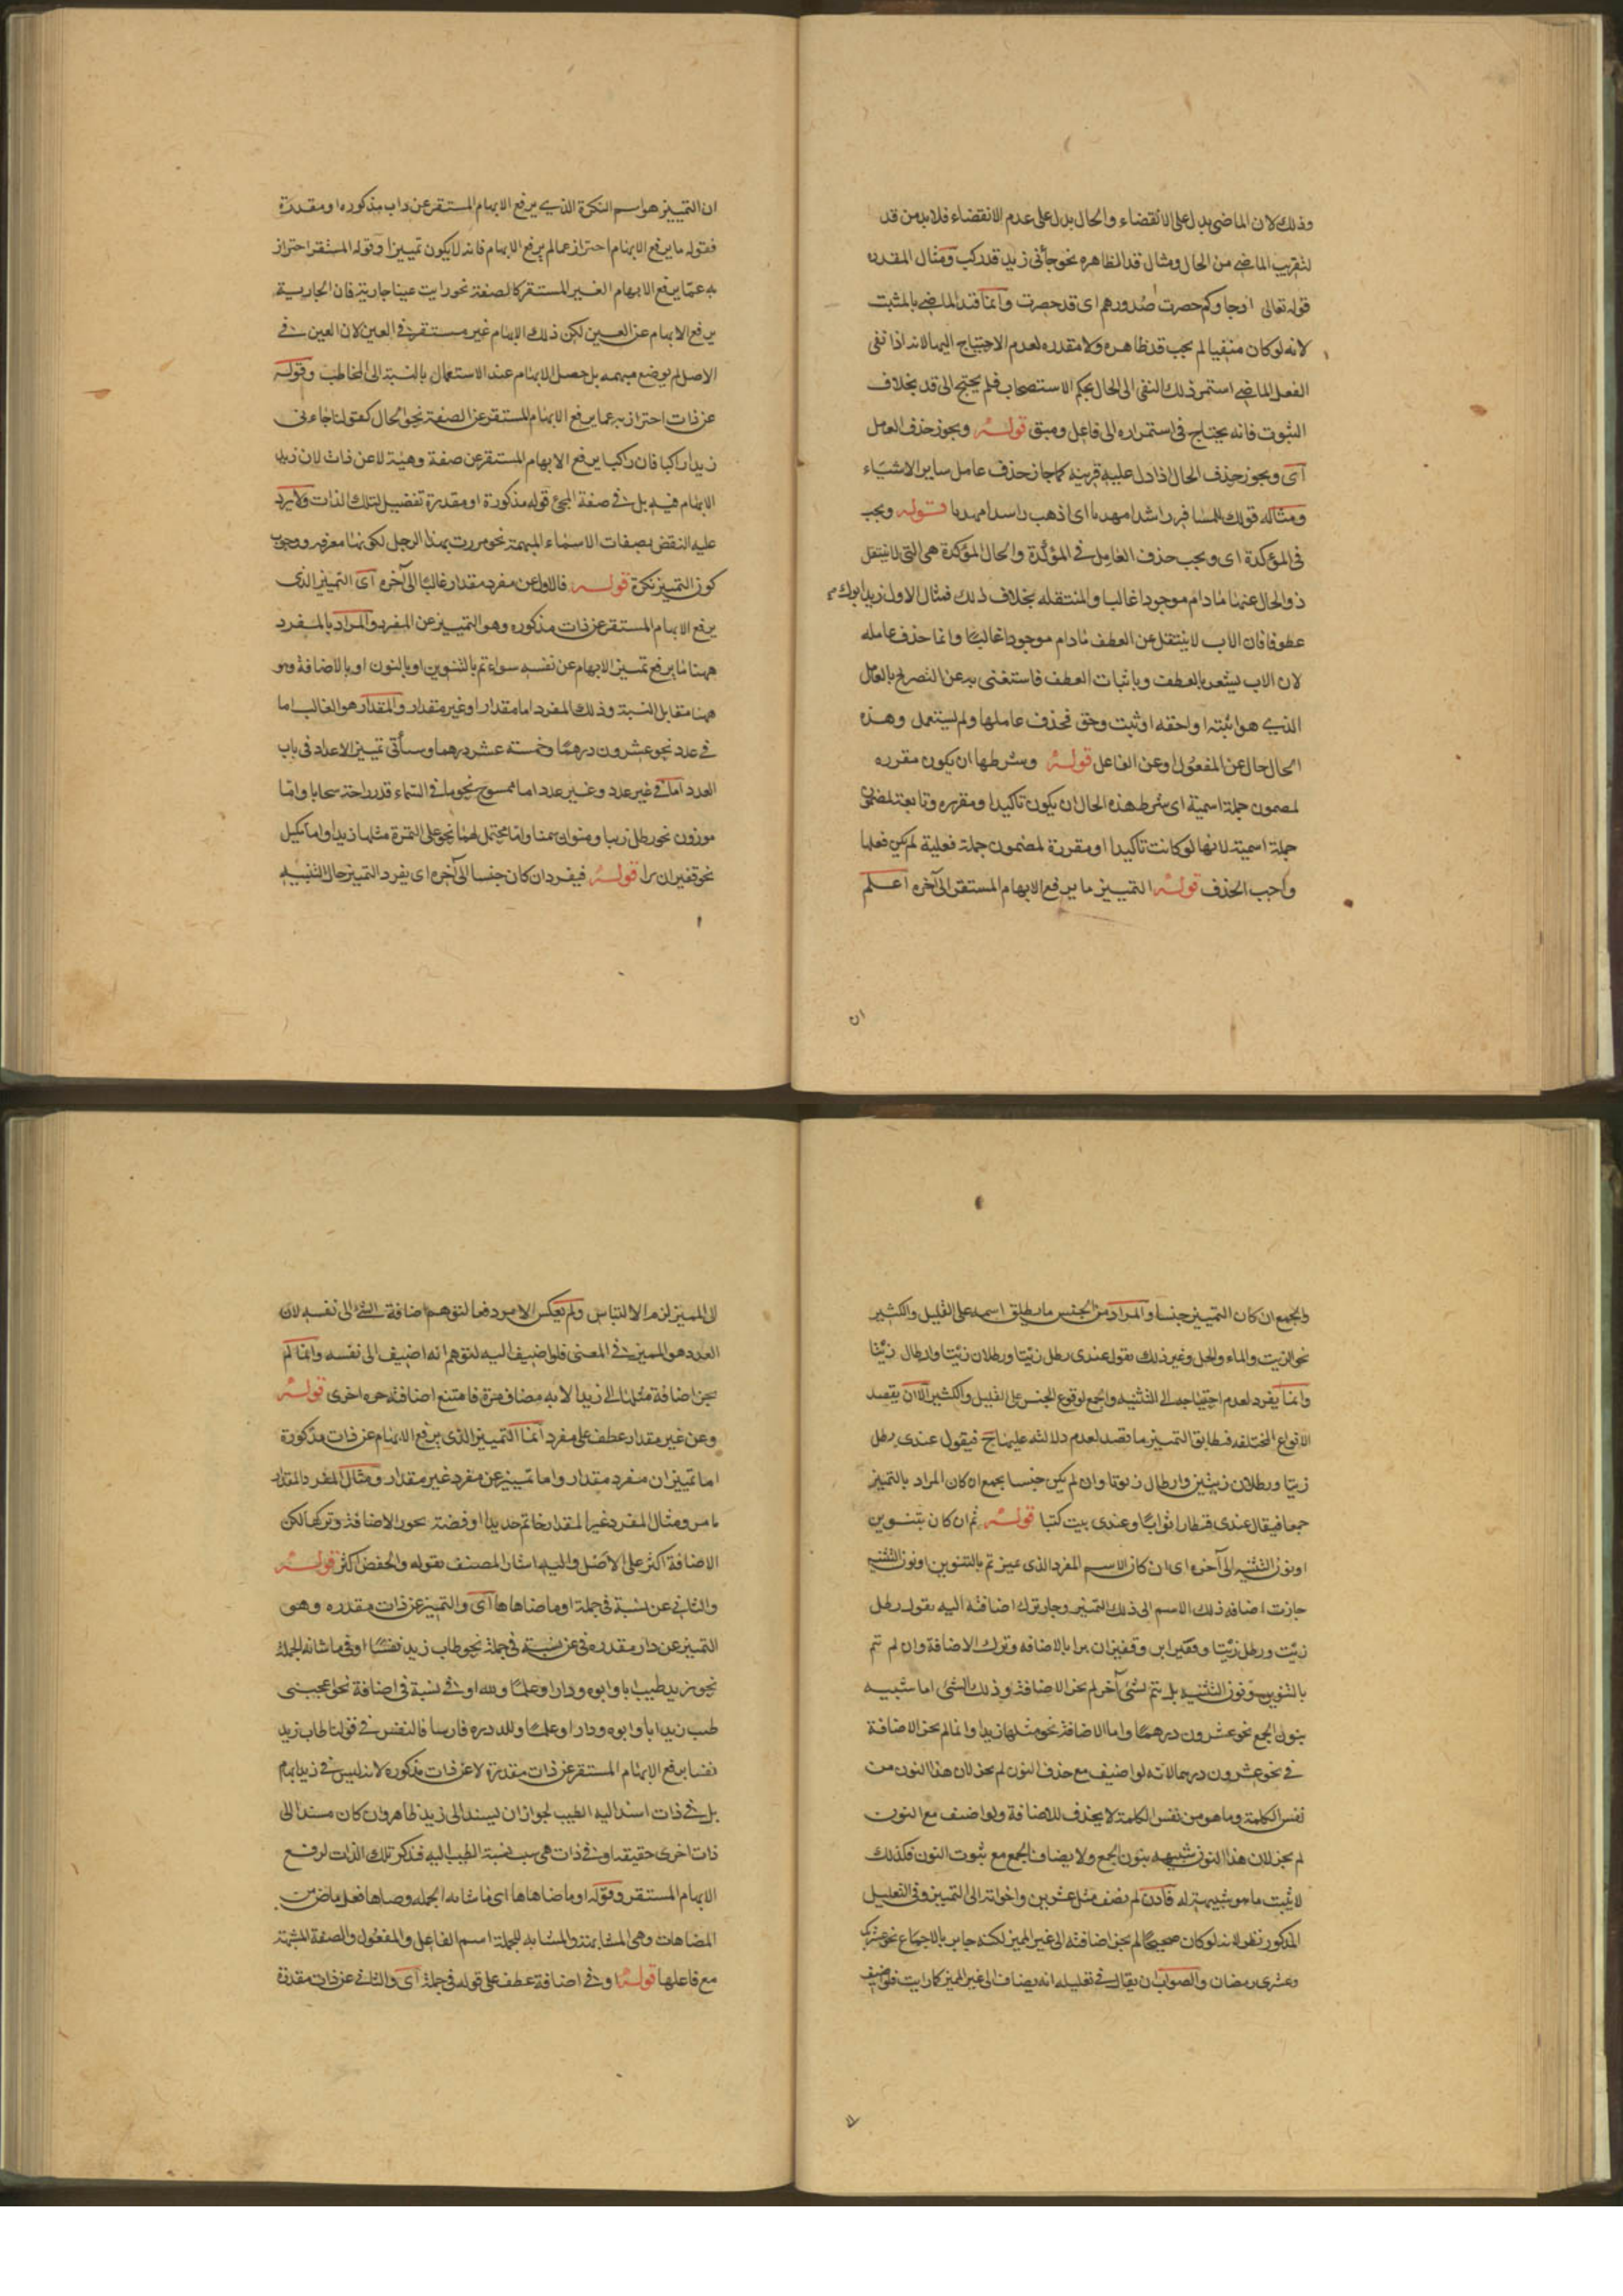 وذلك لان الماضى يدل على الانقضاء والحال يدل على عدم الانقضاء فلا بد من قد
لتقريب الماضى من الحال ومثال قد الظاهره نحو جأنى زيد قد ركب ومثال المقدره
قوله تعالى اوجاوكم حصرت صدورهم اى قد حصرت وانما قيد الماضى بالمثبت
لانه لو كان منفيا لم يجب قد ظاهره ولا مقدره لعدم الاحتياج اليها لانه اذا نفى
الفعل الماضى استمر ذلك النفى الى الحال بحكم الاستصحاب فلم يحتج الى قد بخلاف
الثبوت فانه يحتاج فى استمراره الى فاعل ومبق قوله ويجوز حذف العامل
اى ويجوز حذف الحال اذا دل عليه قرينه كما جاز حذف عامل ساير الاشياء
ومثاله قولك للمسافر راشدا مهديا اى اذهب راشدا مهديا قوله ويجب
فى المؤكدة اى ويجب حذف العامل فى المؤكدة والحال المؤكدة هى التى لا ينتقل
ذو الحال عنها مادام موجودا غالبا والمنتقله بخلاف ذلك فمثال الاول زيد ابوك
عطوفا فان الاب لا ينتقل عن العطف مادام موجودا غالبا وانما حذف عامله
لان الاب يشعر بالعطف وباثبات العطف فاستغنى به عن التصريح بالعامل
الذى هو اثبته او احقه او ثبت وحق فحذف عاملها ولم يستعمل وهذه
الحال حال عن المفعول او عن الفاعل قوله وشرطها ان يكون مقرره
لمضمون جملة اسمية اى شرط هذه الحال ان يكون تاكيدا ومقرره وتابعة لمضمون
جملة اسمية لانها لو كانت تاكيدا او مقررة لمضمون جملة فعلية لم يكن فعلها
واجب الحذف قوله التمييز ما يرفع الابهام المستقر الى آخره اعلم
ان
ان التمييز هو اسم النكرة الذى يرفع الابهام المستقر عن ذات مذكوره او مقدرة
فقوله ما يرفع الابهام احتراز عما لم يرفع الابهام فانه لا يكون تمييزا وقوله المستقر احتراز
به عما يرفع الابهام الغير المستقر كالصفة نحو رايت عينا جارية فان الجارية
يرفع الابهام عن العين لكن ذلك الابهام غير مستقر فى العين لان العين فى
الاصل لم يوضع مبهمه بل حصل الابهام عند الاستعمال بالنسبة الى المخاطب وقوله
عن ذات احتراز به عما يرفع الابهام المستقر عن الصفة نحو الحال كقولنا جاءنى
زيد راكبا فان راكبا يرفع الابهام المستقر عن صفة وهيئة لا عن ذات لان زيد
الابهام فيه بل فى صفة المجئ قوله مذكورة او مقدرة تفصيل لتلك الذات ولا يرد
عليه النقض بصفات الاسماء المبهمة نحو مررت بهذا الرجل لكونها معرفه ووجوب
كون التمييز نكرة قوله فالاول عن مفرد مقدار غالبا الى آخره اى التمييز الذى
يرفع الابهام المستقر عن ذات مذكوره وهو التمييز عن المفرد والمراد بالمفرد
ههنا ما يرفع تمييز الابهام عن نفسه سواء تم بالتنوين او بالنون او بالاضافة وهو
ههنا مقابل النسبة وذلك المفرد اما مقدار او غير مقدار والمقدار هو الغالب اما
فى عدد نحو عشرون درهما وخمسة عشر درهما وسيأتى تمييز الاعداد فى باب
العدد اما فى غير عدد وغير عدد اما ممسوح نحو ما فى السماء قدر راحة سحابا واما
موزون نحو رطل زيتا ومنوان سمنا واما محتمل لهما نحو على التمرة مثلها زبدا واما مكيل
نحو قفيزان برا قوله فيفرد ان كان جنسا الى آخره اى يفرد التمييز حال التثنيه
والجمع ان كان التمييز جنسا والمراد من الجنس ما يطلق اسمه على القليل والكثير
نحو الزيت والماء والخل وغير ذلك تقول عندى رطل زيتا ورطلان زيتا وارطال زيتا
وانما يفرد لعدم احتياجه الى التثنيه والجمع لوقوع الجنس على القليل والكثير الا ان يقصد
الانواع المختلفه فيطابق التمييز ما قصد لعدم دلالته عليها ح فيقول عندى رطل
زيتا ورطلان زيتين وارطال زيوتا وان لم يكن جنسا يجمع ان كان المراد بالتمييز
جمعا فيقال عندى قنطار اثوابا وعندى بيت كتبا قوله ثم ان كان بتنوين
او نون التثنيه الى آخره اى ان كان الاسم المفرد الذى عيز تم بالتنوين او نون التثنيه
جازت اضافه ذلك الاسم الى ذلك التمييز وجاز ترك اضافته اليه تقول رطل
زيت ورطل زيتا وقفيزا بر وقفيزان برا بالاضافه وترك الاضافة وان لم تتم
بالتنوين ونون التثنيه بل تتم بشئ آخر لم يجز الاضافة وذلك الشئ اما شبيه
بنون الجمع نحو عشرون درهما واما الاضافة نحو مثلها زبدا وانما لم يجز الاضافة
فى نحو عشرون درهما لانه لو اضيف مع حذف النون لم يجز لان هذا النون من
نفس الكلمة وما هو من نفس الكلمة لا يحذف للاضافة ولو اضيف مع النون
لم يجز لان هذا النون شبيهه بنون الجمع ولا يضاف الجمع مع ثبوت النون فكذلك
لا يثبت ما هو شبيه بمنزلته فاذن لم يضف مثل عشرين واخواته الى التمييز وفى التعليل
المذكور نظر لانه لو كان صحيحا لم يجز اضافته الى غير المميز لكنه جايز بالاجماع نحو عشريك
وعشرى رمضان والصواب ان يقال فى تعليله انه يضاف الى غير المميز كما رايت فلو اضيف
الى المميز لزم الالتباس ولم يعكس الامر دفعا لتوهم اضافة الشئ الى نفسه لان
العدد هو المميز فى المعنى فلو اضيف اليه لتوهم انه اضيف الى نفسه وانما لم
يجز اضافة مثلها الى زبدا لانه مضاف مرة فامتنع اضافته مره اخرى قوله
وعن غير مقدار عطف على مفرد انما التمييز الذى يرفع الابهام عن ذات مذكورة
اما تمييز ان مفرد مقدار واما تمييز عن مفرد غير مقدار ومثال المفرد المقدار
ما مر ومثال المفرد غير المقدار خاتم حديدا او فضة يجوز الاضافة وتركها لكن
الاضافة اكثر على الاصل واليه اشار المصنف بقوله والخفض اكثر قوله
والثانى عن نسبة فى جملة او ما ضاهاها اى والتمييز عن ذات مقدره وهو
التمييز عن ذات مقدره فى عن نسبة فى جملة نحو طاب زيد نفسا او فى ما شابه الجملة
نحو زيد طيب ابا وابوه ودارا وعلما ولله او فى نسبة فى اضافة نحو اعجبنى
طيب زيد ابا وابوه ودارا وعلما ولله دره فارسا فالنفس فى قولنا طاب زيد
نفسا يرفع الابهام المستقر عن ذات مقدرة لا عن ذات مذكوره لانه ليس فى زيد ابهام
بل فى ذات اسند اليه الطيب لجواز ان يسند الى زيد ظاهر وان كان مسندا الى
ذات اخرى حقيقة وفى ذات هى سبب نسبة الطيب اليه فذكر تلك الذات لرفع
الابهام المستقر وقوله او ما ضاهاها اى ما شابه الجمله وضاها فعل ماض من
المضاهات وهى المشابهة والمشابه للجملة اسم الفاعل والمفعول والصفة المشبهة
مع فاعلها قوله او فى اضافة عطف على قوله فى جملة اى والثانى عن ذات مقدرة